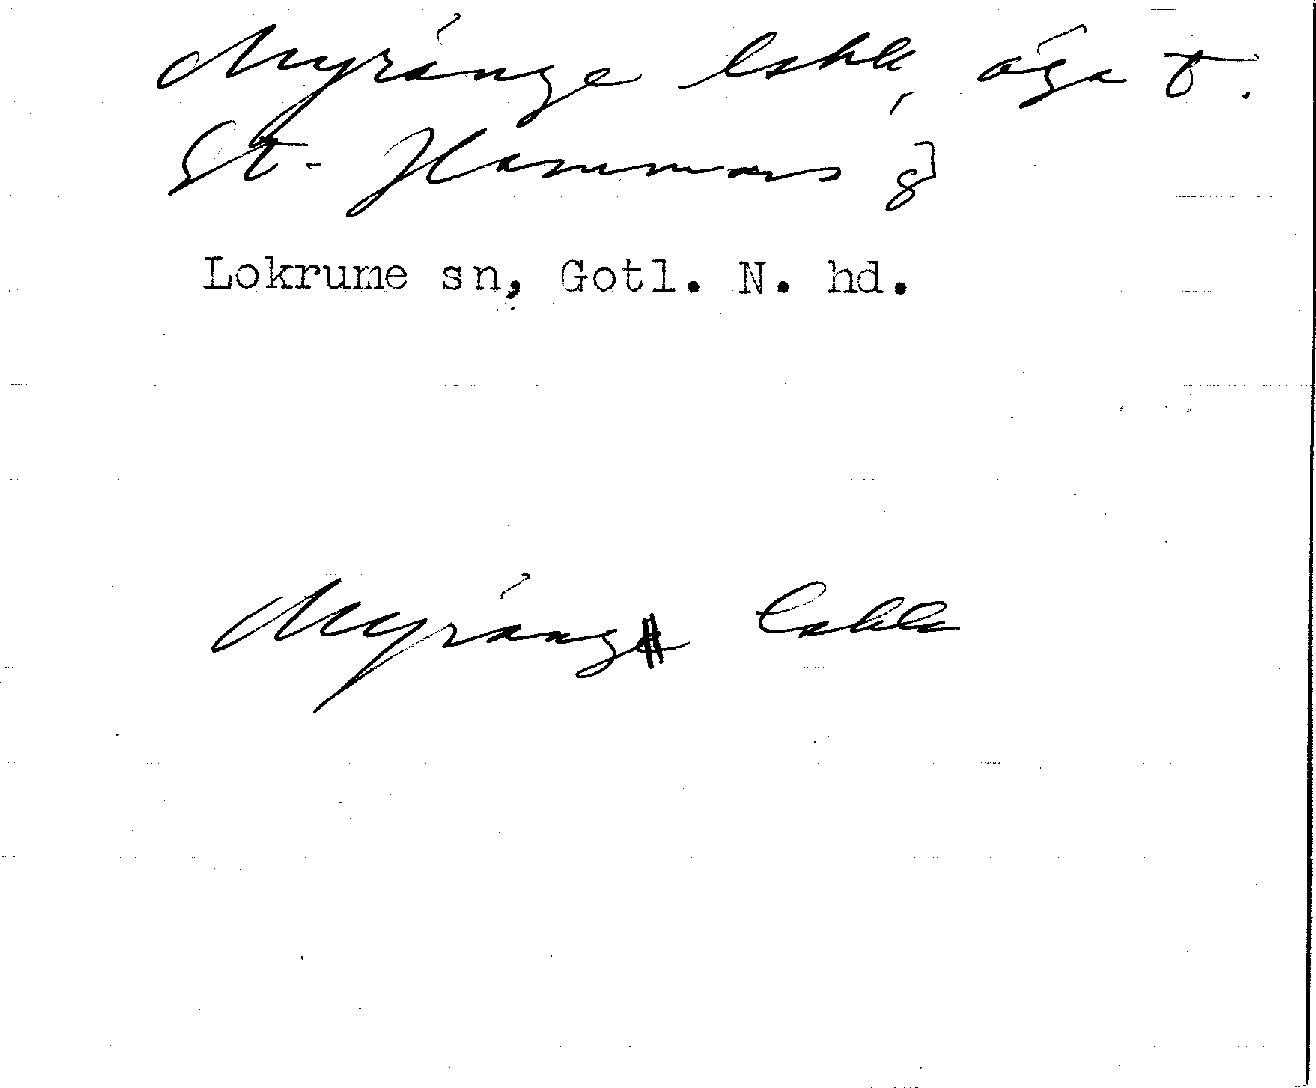 Myränge lakk, äga t.
St. Hammars g]
Lokrume sn, Gotl. N. hd.
Myränge lakk